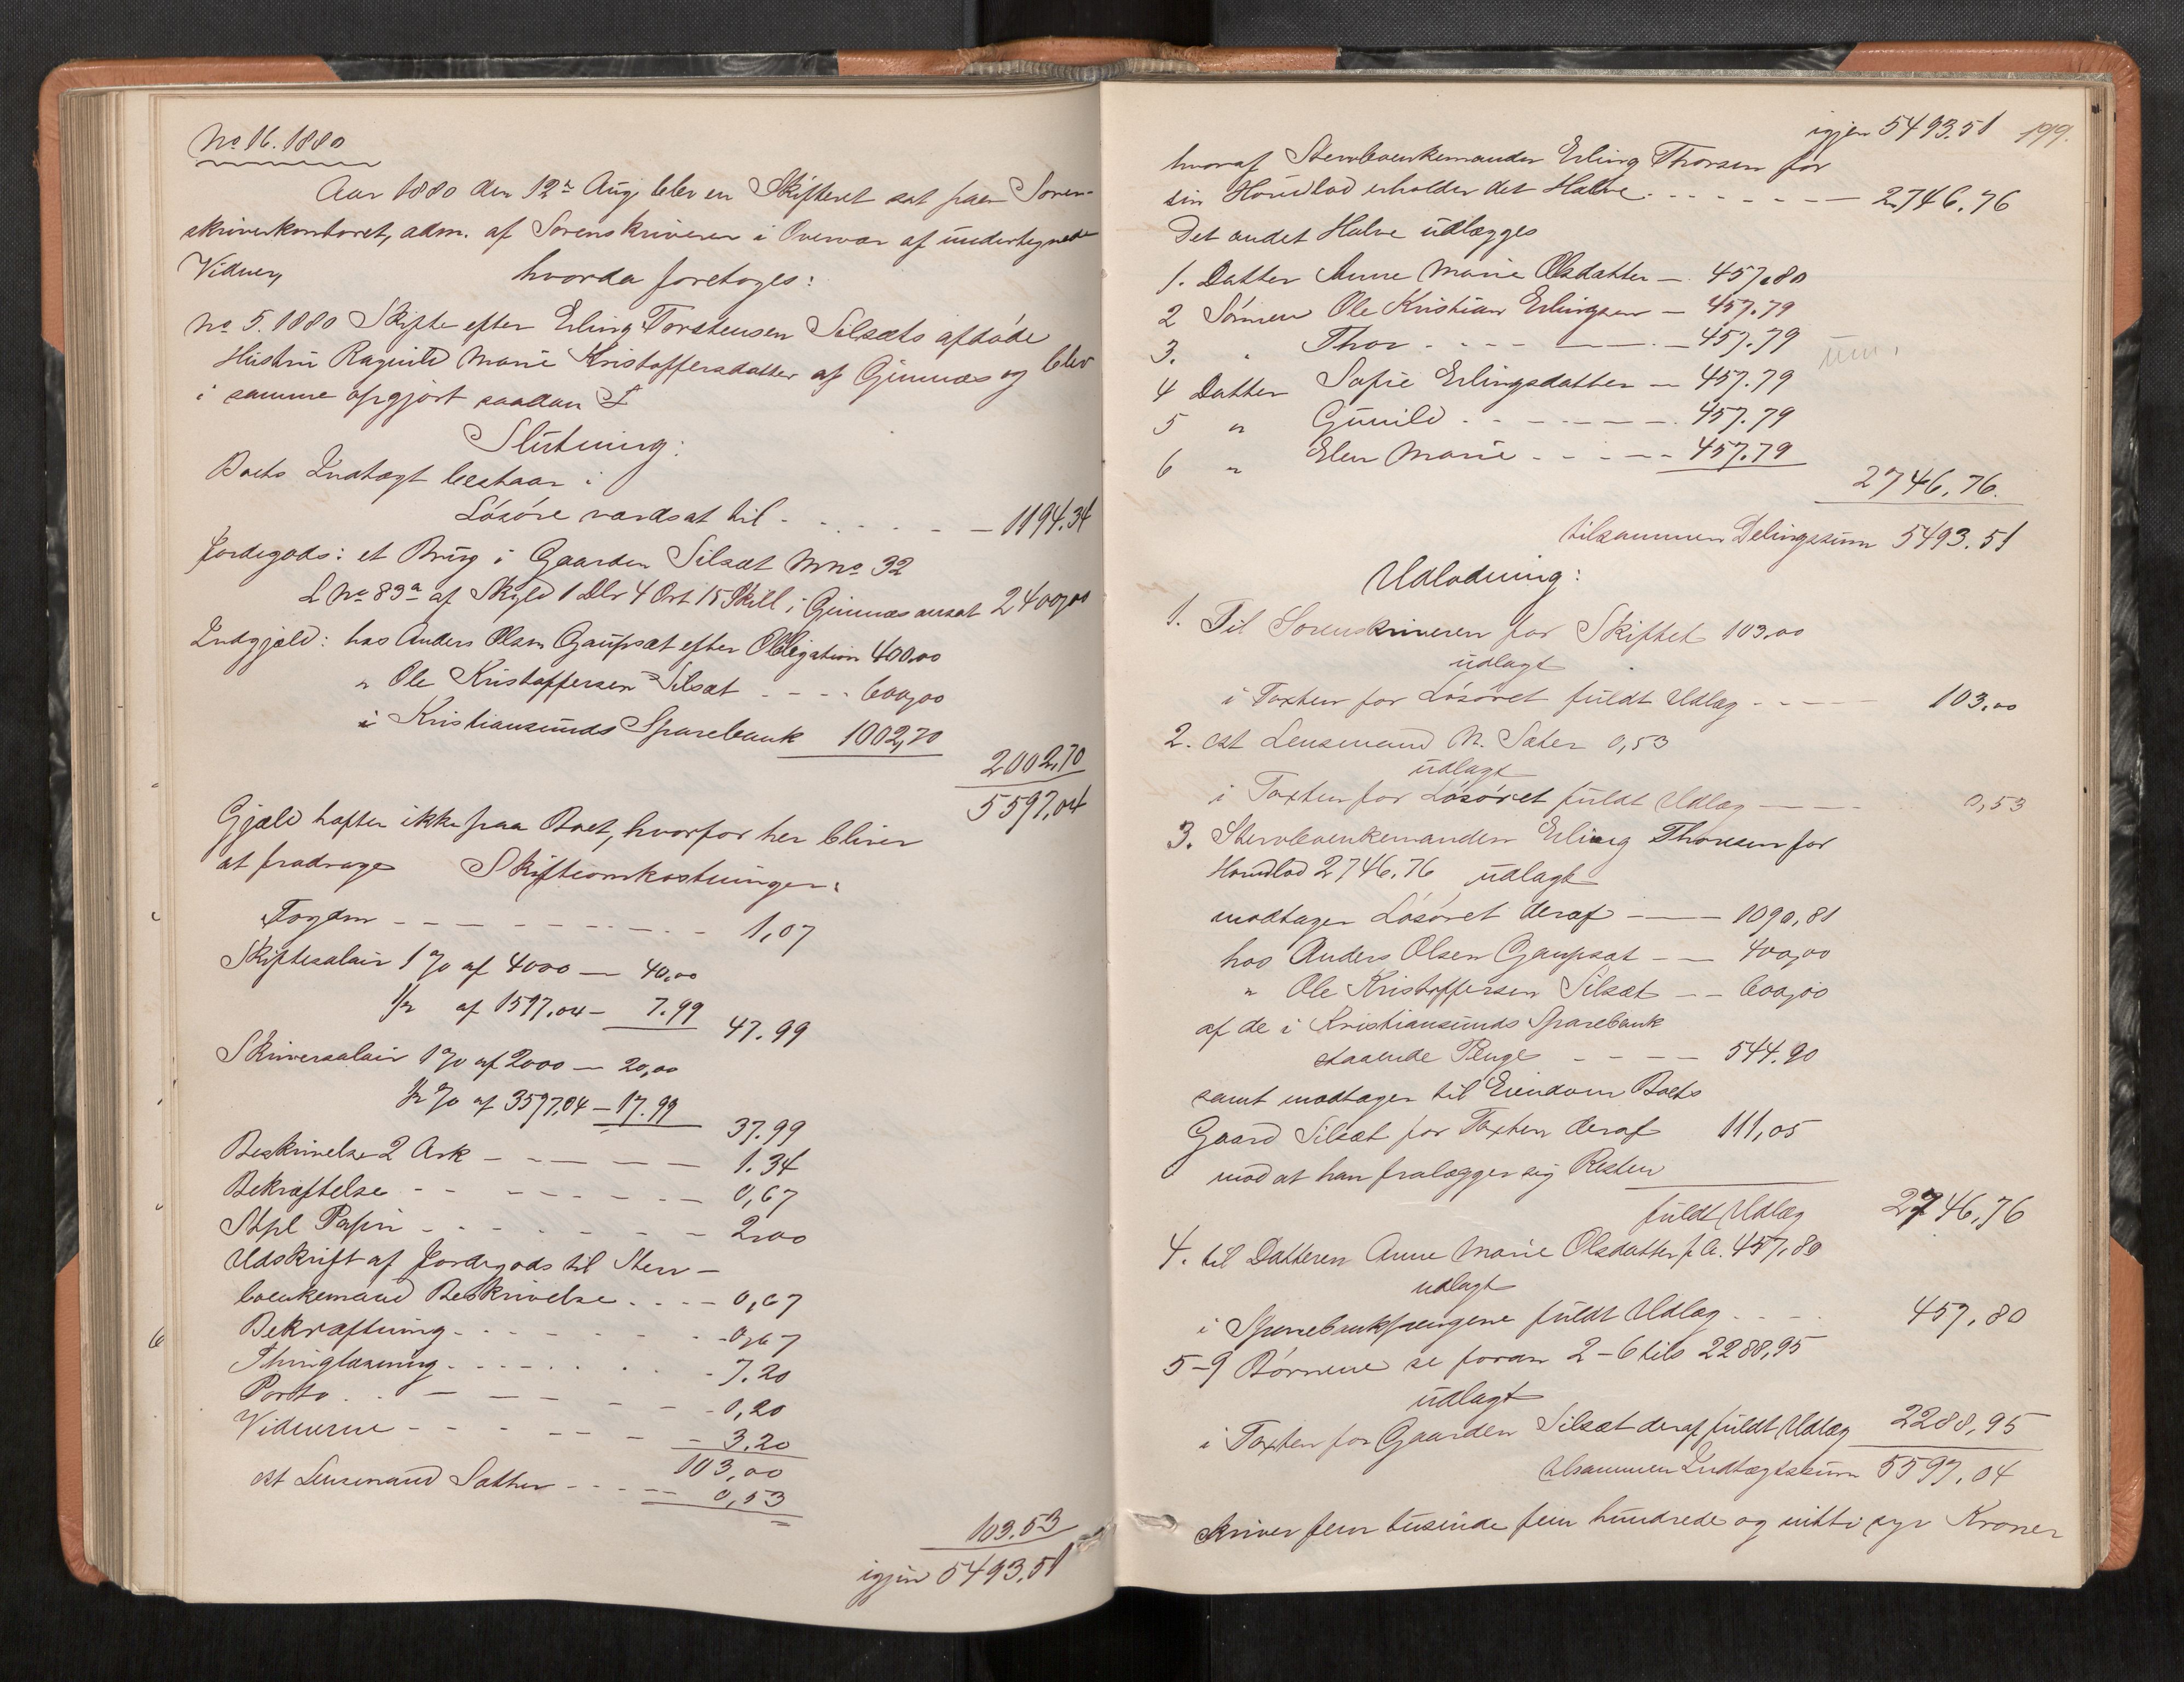 No 16. 1880
Aar 1880 den 12te Aug. blev en Skifteret sat paa Soren-
skriverkontoret, adm. af Sorenskriveren i Overvær af undertegnede
Vidner, hvorda foretoges:
No 5. 1880 Skifte efter Erling Torstensen Silsæts afdøde
Hustru Ragnild Marie Kristoffersdatter af Gimnæs og blev
i samme opgjort saadan
Slutning:
Boets Indtægt bestaar i
Løsøre værdsat til - - - - - 1194.34
Jordegods: et Brug i Gaarden Silsæt Mno 32
L No 83a af Skyld 1 Dlr 4 Ort 15 Skill i Gimnæs ansat 2400,00
Indgjæld: hos Anders Olsen Gaupsæt efter Obligation 400.00
" Ole Kristoffersen Silsæt - - - - 600,00
i Kristiansunds Sparebank 1002,70
2002,70
5597,04
Gjæld hæfter ikke paa Boet, hvorfor her bliver
at fradrage Skifteomkostninger:
Fogden - - - - - - - 1,07
Skiftesalair 1 % af 4000 — 40,00
1/2 af 1597.04 — 7.99
47.99
Skriversalair 1 % af 2000 — 20,00
1/2 % af 3597,04 — 17.99
37.99
Beskrivelse 2 Ark - - - - - 1.34
Bekræftelse - - - - - - 0,67
Stpl Papir - - - - - - 2,00
Udskrift af Jordegods til Sterv-
boenkemand Beskrivelse - - - - 0,67
Bekræftning - - - - - - 0,67
Thinglæsning - - - - - - 7.20
Porto - - - - - - 0,20
Vidnerne - - - - - - 3.20
103,00
cst Lensmand Sæther - - - - - 0,53
103.53
igjen 5493.51
igjen 5493.51 199.
hvoraf Stervboenkemanden Erling Thorsen for
sin Hovedlod erholder det Halve - - - - - - 2746.76
Det andet Halve udlægges
1. Datter Anne Marie Olsdatter — 457.80
2 Sønnen Ole Kristian Erlingsen — 457.79
3. " Thor - - - - - - 457.79
4 Datter Sofie Erlingsdatter — 457.79
5 " Gunild - - - - - - 457.79
6 " Elen Marie - - - - - 457.79
2746,76.
tilsammen Delingssum 5493.51
Udlodning:
1. Til Sorenskriveren for Skiftet 103.00
udlagt
i Taxten for Løsøret fuldt Udlæg - - - - 103.00
2. cst Lensmand N. Sæter 0,53
udlagt
i Taxten for Løsøret fuldt Udlæg - - - 0,53
3. Stervboenkemanden Erling Thorsen for
Hovedlod 2746.76 udlagt
modtager Løsøret deraf - - - 1090,81
hos Anders Olsen Gaupsæt - - 400,00
" Ole Kristoffersen Silsæt - - 600,00
af de i Kristiansunds Sparebank
staaende Penge - - - - 544.90
samt modtager til Eiendom Boets
Gaard Silsæt for Taxten deraf 111,05
mod at han fralægger sig Resten
fuldt Udlæg 2746,76
4. til Datteren Anne Marie Olsdatter f. A. 457.80
udlagt
i Sparebankspengene fuldt Udlæg - - - 457,80
5-9 Børnene se foran 2-6 tils 2288,95
udlagt
i Taxten for Gaarden Silsæt deraf fuldt Udlæg 2288,95
tilsammen Indtægtssum 5597,04
skriver fem tusinde fem hundrede og nitti syv Kroner